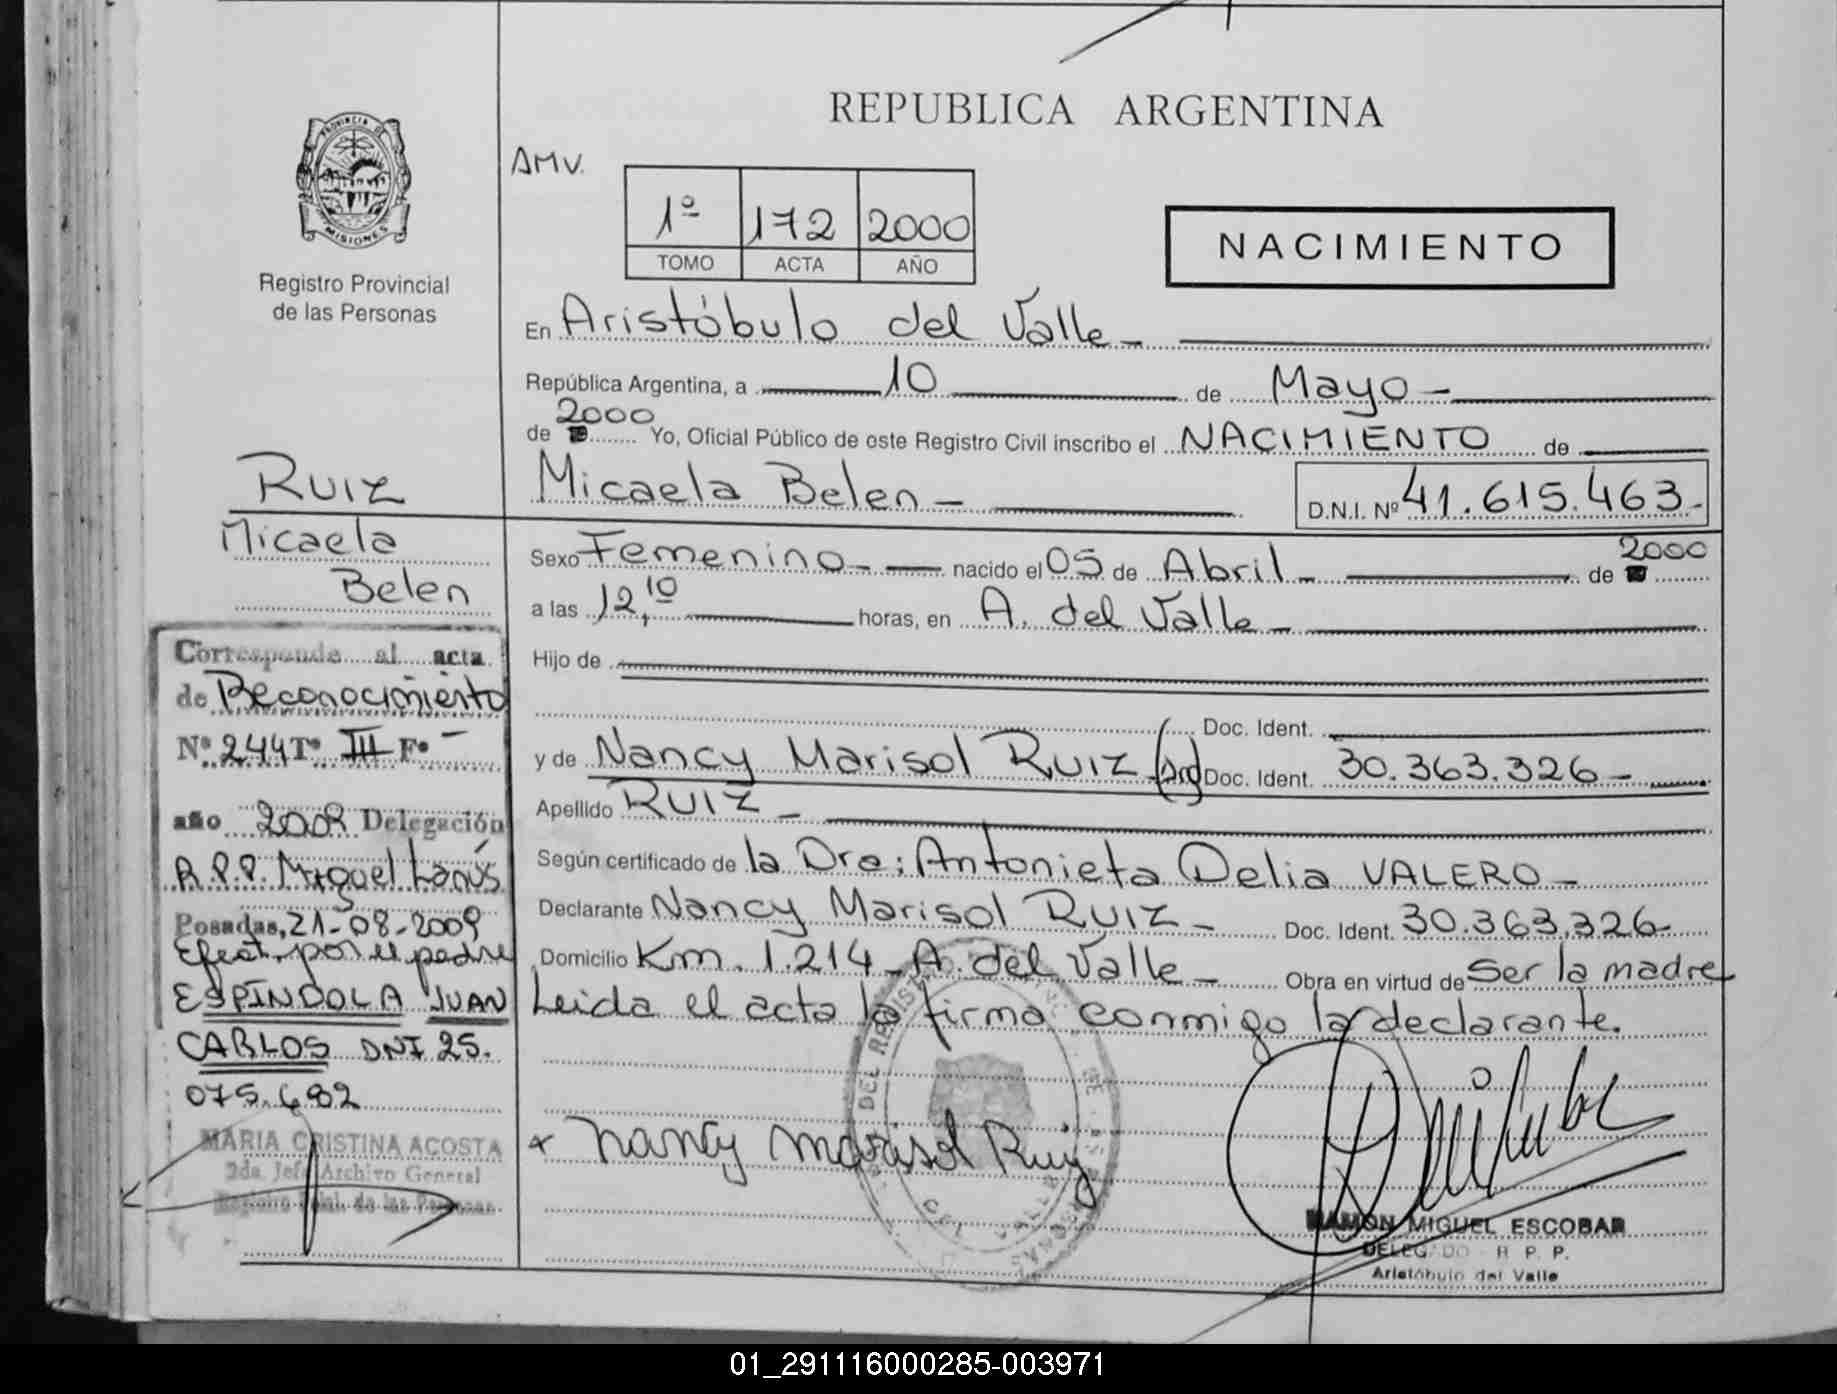 REPUBLICA ARGENTINA
PROVINCIA DE
MISIONES
Registro Provincial
de las Personas
AMV.
1º 172 2000
TOMO ACTA AÑO
NACIMIENTO
En Aristóbulo del Valle -
República Argentina, a 10 de Mayo -
2000
de Yo, Oficial Público de este Registro Civil inscribo el NACIMIENTO de
Micaela Belen - D.N.I. Nº 41.615.463 -
Sexo Femenino - nacido el 05 de Abril - de 2000
a las 12,10 horas, en A. del Valle -
Hijo de
Doc. Ident.
y de Nancy Marisol RUIZ (arg) Doc. Ident. 30.363.326 -
Apellido RUIZ -
Según certificado de la Dra: Antonieta Delia VALERO -
Declarante Nancy Marisol RUIZ - Doc. Ident. 30.363.326 -
Domicilio Km. 1.214 - A. del Valle - Obra en virtud de ser la madre
Leida el acta la firma conmigo la declarante.
Nancy Marisol Ruiz
RAMON MIGUEL ESCOBAR
DELEGADO R. P. P.
Aristóbulo del Valle
RUIZ
Micaela
Belen
Corresponde al acta
de Reconocimiento
Nº 244 Tº III Fº -
año 2009 Delegación
R.P.P. Miguel Lanús
Posadas, 21-08-2009
Efect. por el padre
ESPÍNDOLA JUAN
CARLOS DNI 25.
075.682
MARIA CRISTINA ACOSTA
2da. Jefe Archivo General
Registro Pcial. de las Personas
01_291116000285-003971